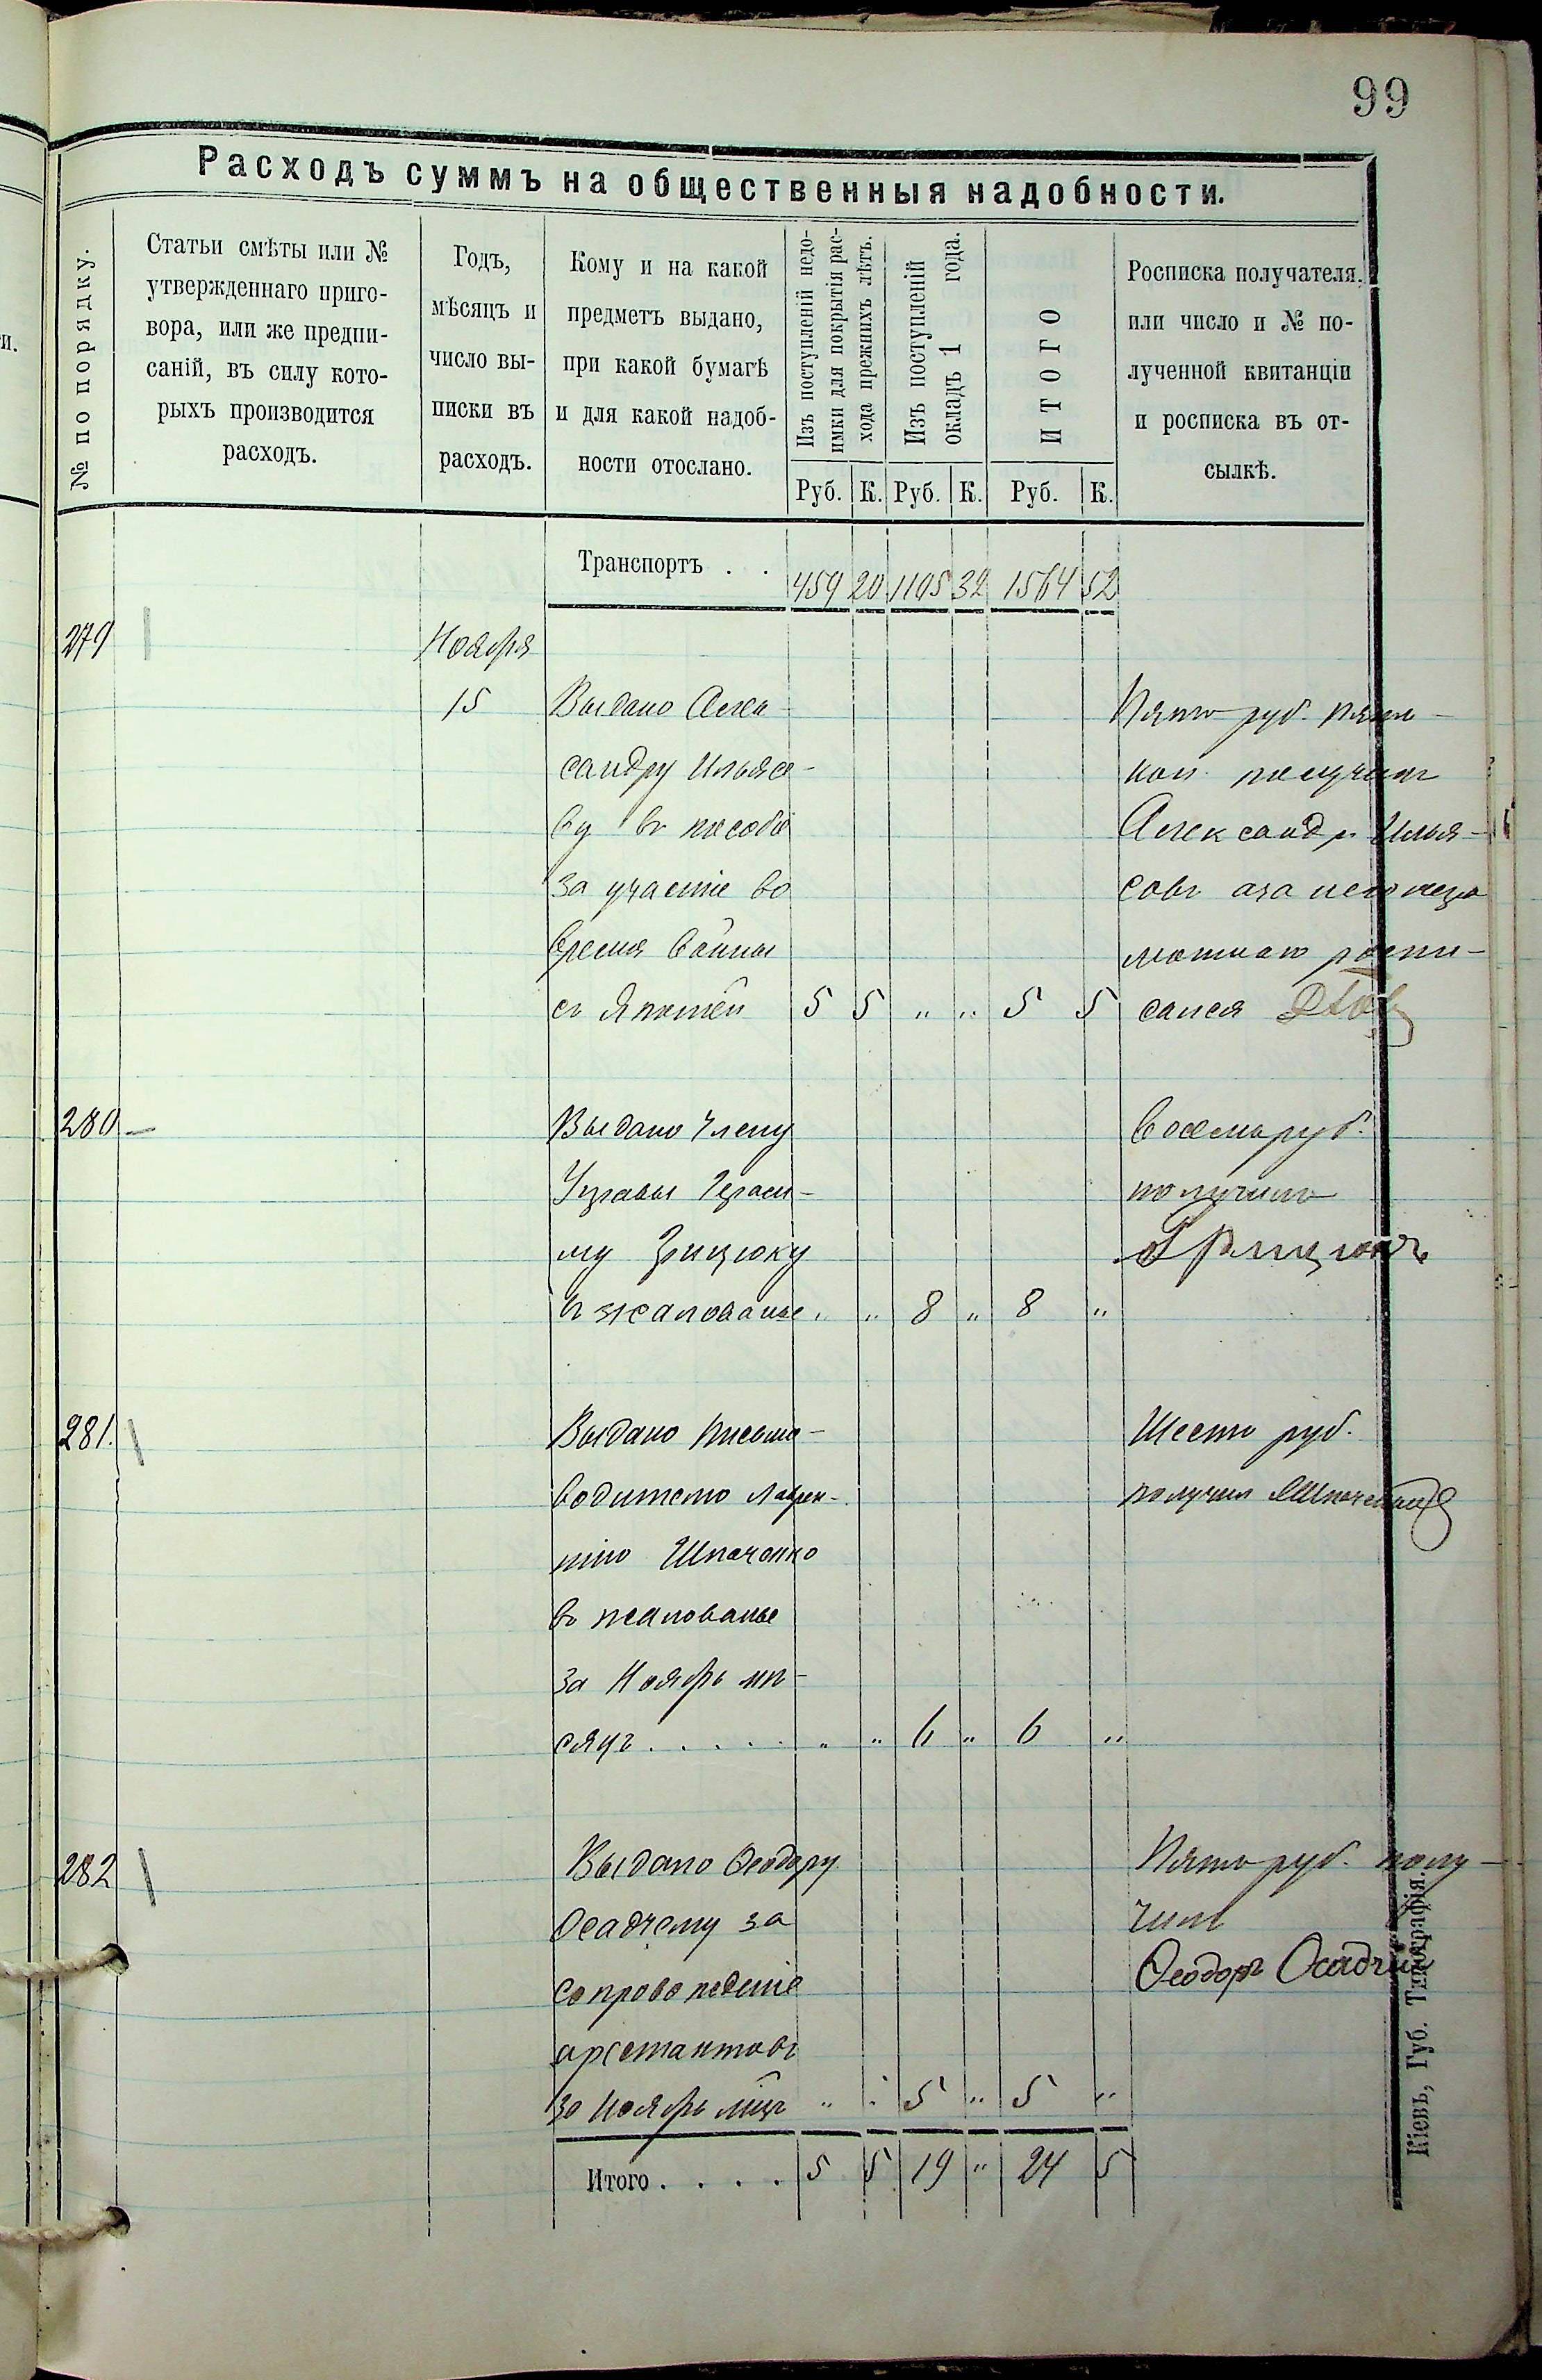 99
Расходъ суммъ на общественныя надобности.
№ по порядку.
Статьи смѣты или №
утвержденнаго приго-
вора, или же предпи-
саній, въ силу кото-
рыхъ производится
расходъ.
Годъ,
мѣсяцъ и
число вы-
писки въ
расходъ.
Кому и на какой
предметъ выдано,
при какой бумагѣ
и для какой надоб-
ности отослано.
Изъ поступленій недо-
имки для покрытія рас-
хода прежнихъ лѣтъ.
Изъ поступленій
окладъ 1 года.
ИТОГО
Росписка получателя,
или число и № по-
лученной квитанціи
и росписка въ от-
сылкѣ.
Руб. К. Руб. К. Руб. К.
Транспортъ . . 459 20 1105 32 1564 52
279 Ноября
15 Выдано Алек-
сандру Ильясо-
ву въ пособіе
за участіе во
время войны
съ Японіей 5 5 " " 5 5
Пять руб. пять
коп. получилъ
Александръ Илья-
совъ а за него негра
мотнаго распи-
сался
280 Выдано Члену
Управы Гераси-
му Грицюку
въ жалованье " " 8 " 8 "
Восемь руб.
получилъ
Грицюкъ
281. Выдано Письмо-
водителю Лаврен-
тію Шпаченко
въ жалованье
за Ноябрь мѣ-
сяцъ . . . . . " " 6 " 6 "
Шесть руб.
получил ЛШпаченко
282 Выдано Ѳеодору
Осадчему за
сопровожденіе
арестантовъ
за Ноябрь мцъ " " 5 " 5 "
Пять руб. полу-
чилъ
Ѳеодоръ Осадчій
Итого . . . . 5 5 19 " 24 5
Кіевъ, Губ. Типографія.